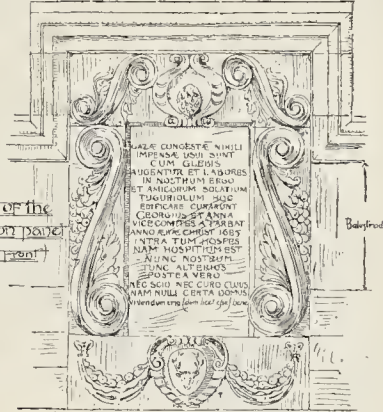 GAZÆ CONGESTÆ NIHILI
IMPENSÆ USUI SUNT
CUM GLEBIS
AUGENTUR ET LABORES
IN NOSTRUM ERGO
ET AMICORUM SOLATIUM
TUGURIOLUM HOC
EDIFICARE CURARUNT
GEORGIUS ET ANNA
VICECOMITES A TARBAT
ANNO ÆRÆ CHRIST 1685
INTRA TUM HOSPES
NAM HOSPITIUM EST
NUNC NOSTRUM
TUNC ALTERIUS
POSTEA VERO
NEC SCIO NEC CURO CUIUS
NAM NULLI CERTA DOMUS
vivendum ergo dum licet esse bene
of the
on panel
Front
Balustrad